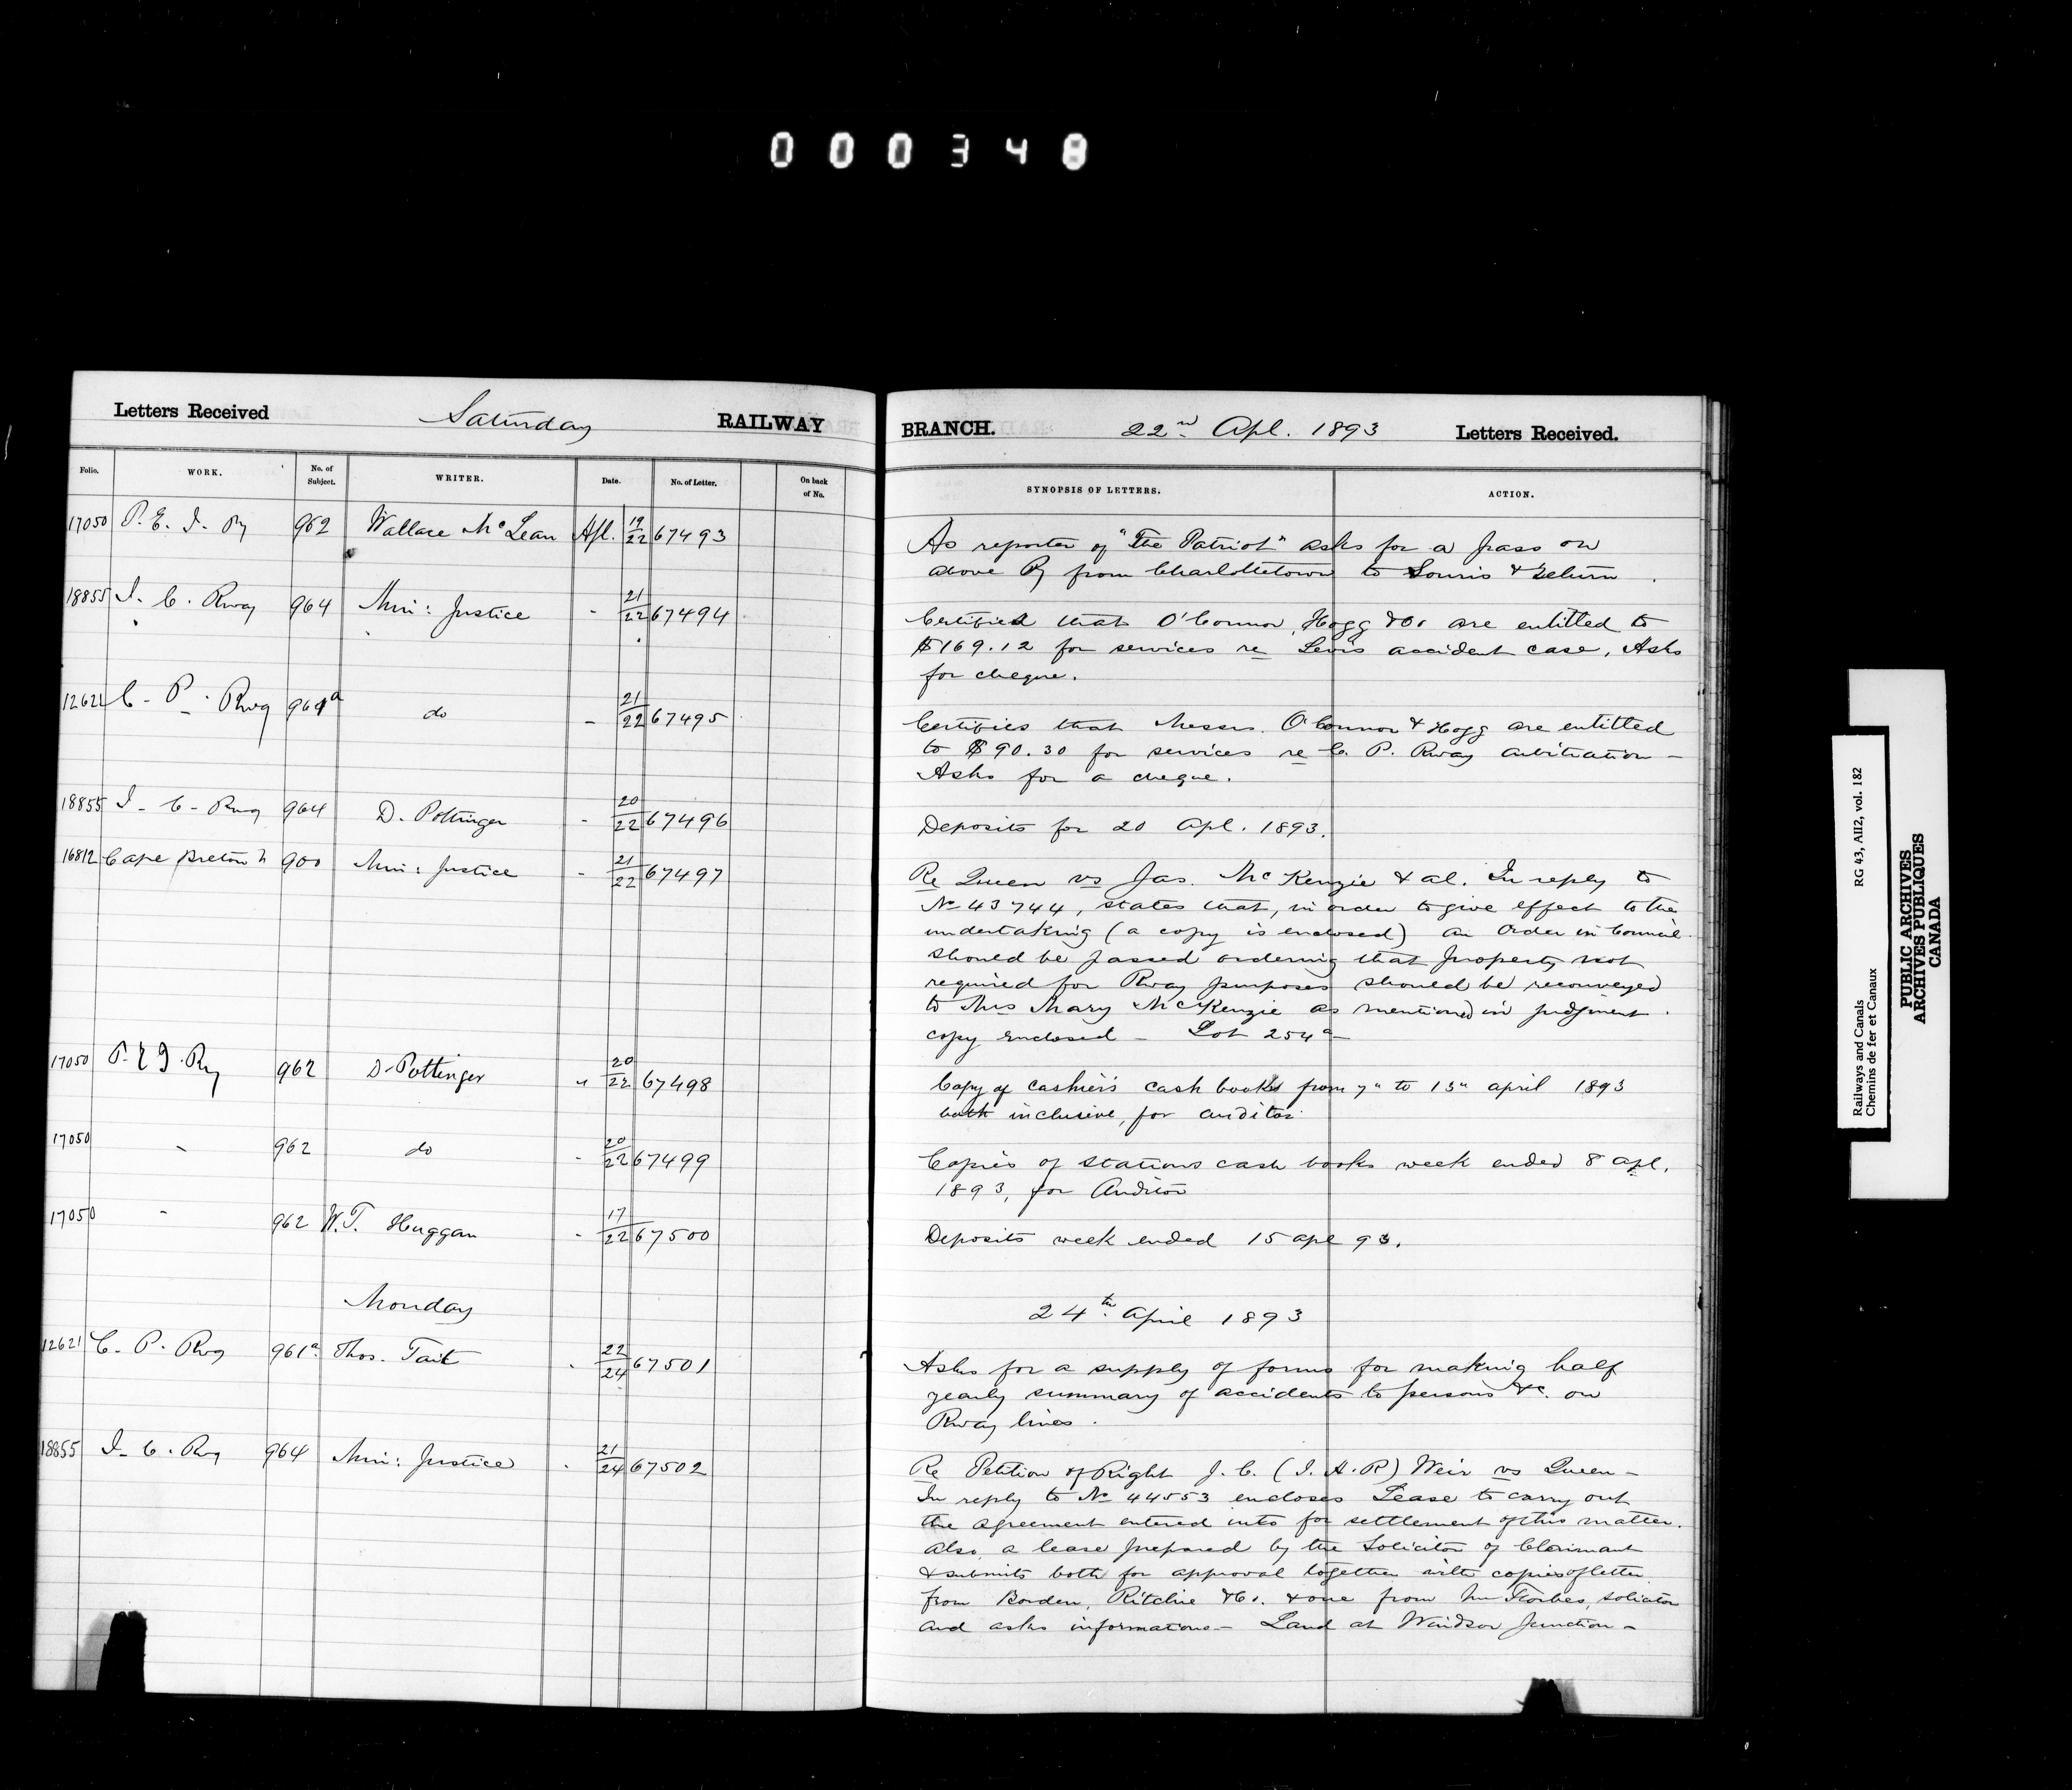 000348
Letters Received Saturday RAILWAY
BRANCH. 22nd Apl. 1893 Letters Received.
Folio. WORK. No. of Subject. WRITER. Date. No. of Letter. On back of No.
SYNOPSIS OF LETTERS. ACTION.
17050 P. E. I. Ry 962 Wallace McLean Apl. 19/22 67493
As reporter of "The Patriot" asks for a pass on
above Ry from Charlottetown to Souris & return.
18855 I. C. Rway 964 Min: Justice - 21/22 67494
Certified that O'Connor, Hogg & Co are entitled to
$169.12 for services re Levis accident case, Asks
for cheque.
12621 C. P. Rwy 961a do - 21/22 67495
Certifies that Messrs. O'Connor & Hogg are entitled
to $90.30 for services re C. P. Rway arbitration -
Asks for a cheque.
18855 I. C. Rwy 964 D. Pottinger - 20/22 67496
Deposits for 20 Apl. 1893.
16812 Cape Breton 900 Min: Justice - 21/22 67497
Re Queen vs Jas. McKenzie & al. In reply to
No 43744, states that, in order to give effect to the
undertaking (a copy is enclosed) an Order in Council
should be passed ordering that property not
required for Rway purposes should be reconveyed
to Mrs Mary McKenzie as mentioned in judgment.
copy enclosed - Lot 254a -
17050 P. E I. Ry 962 D. Pottinger " 20/22 67498
Copy of cashier's cash books from 7" to 13" april 1893
both inclusive, for auditor.
17050 - 962 do - 20/22 67499
Copies of stations cash books week ended 8 apl.
1893, for Auditor
17050 - 962 W.T. Huggan - 17/22 67500
Deposits week ended 15 apl 93.
Monday
24th April 1893
12621 C. P. Rwy 961a Thos. Tait - 22/24 67501
Asks for a supply of forms for making half
yearly summary of accidents to persons &c. on
Rway lines.
18855 I. C. Rwy 964 Min: Justice - 21/24 67502
Re Petition of Right J. C. (I. H. R) Weir vs Queen -
In reply to No 44553 encloses Lease to carry out
the agreement entered into for settlement of this matter.
Also, a lease prepared by the Solicitor of Claimant
& submits both for approval together with copies of letter
from Borden, Ritchie & Co. & one from Mr Forbes, solicitor
and asks information - Land at Windsor Junction -
Railways and Canals RG 43, AII2, vol. 182
Chemins de fer et Canaux
PUBLIC ARCHIVES
ARCHIVES PUBLIQUES
CANADA